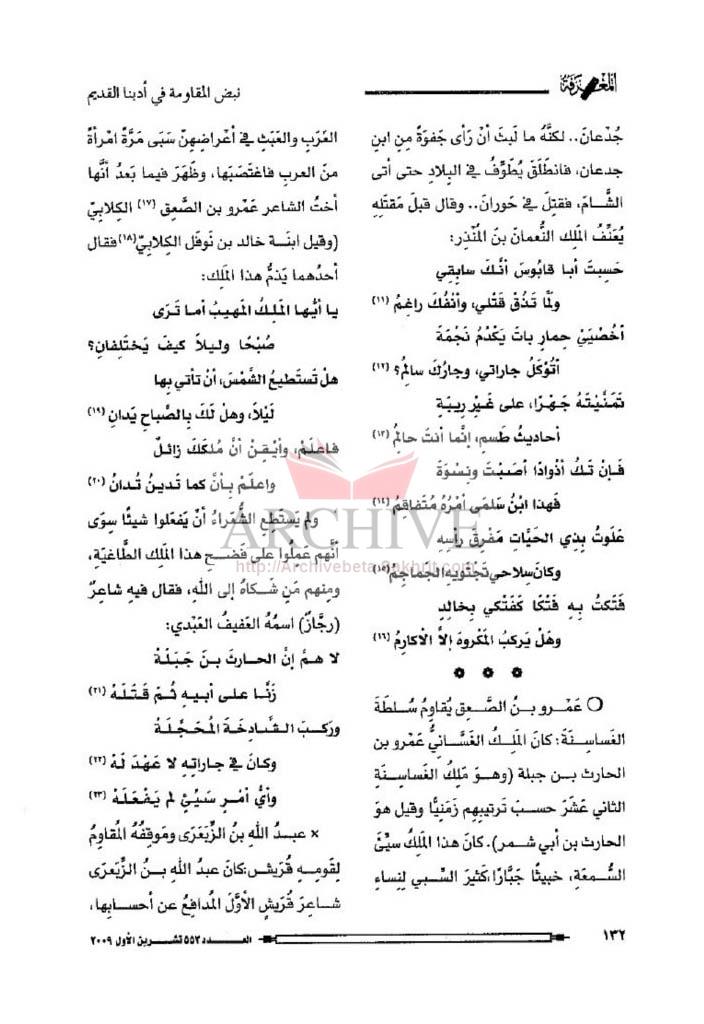 المعرفة
نبض المقاومة في أدبنا القديم
جُدْعانَ.. لكنَّهُ ما لَبثَ أنْ رَأى جَفوَةً مِن ابنِ
جدعان، فانطَلَقَ يُطَوِّفُ في البلادِ حتى أتى
الشَّامَ، فقتِلَ في حَورانَ.. وقال قبلَ مَقتَلِهِ
يُعَنِّفُ المَلِك النُّعمانَ بنَ المُنْذِر:
حَسِبتَ أبا قابُوسَ أنَّكَ سابِقِي
ولَمَّا تَذُقْ قَتْلي، وأنفُكَ راغِمُ (١١)
أخُصْيَيْ حِمارٍ باتَ يَكْدُمُ نَجْمَةً
أتُؤْكَلُ جاراتي، وجارُكَ سالِمُ؟ (١٢)
تَمَنَّيْتَهُ جَهْرًا، على غَيْرِ رِيبَةٍ
أحاديثُ طَسمٍ، إنَّما أنتَ حالِمُ (١٣)
فَإنْ تَكُ أذْوادًا أصَبْتَ ونِسْوَةً
فَهذا ابْنُ سَلمَى أمْرُهُ مُتَفاقِمُ (١٤)
عَلَوتُ بِذي الحَيَّاتِ مَفْرِقَ رأسِهِ
وكانَ سِلاحي تَجْتَوِيهِ الجَماجِمُ (١٥)
فَتَكتُ بِهِ فَتْكًا كَفَتْكي بِخالِدٍ
وهَلْ يَركَبُ المَكْروهَ إلاَّ الأكارِمُ (١٦)
❁ ❁ ❁
○ عَمْرو بنُ الصَّعِق يُقاوِمُ سُلطَةَ
الغَساسِنَةِ: كانَ المَلِكُ الغَسَّانيُّ عَمْرو بن
الحارث بن جبلة (وهوَ مَلِكُ الغَساسِنَةِ
الثاني عَشَرَ حسبَ ترتيبِهم زَمَنِيًّا وقيل هو
الحارث بن أبي شمر). كانَ هذا المَلِكُ سيِّئَ
السُّمعَةِ، خبيثًا جَبَّارًا كَثيرَ السَّبي لِنِساءِ
العَرَبِ والعَبَثِ في أعْراضِهنَّ سَبَى مَرَّةً امْرأةً
منَ العربِ فاغتَصَبَها، وظَهَرَ فيما بَعدُ أنَّها
أختُ الشاعر عَمْرو بن الصَّعِق (١٧) الكِلابيِّ
(وقيل ابنَة خالد بن نَوفَل الكِلابيِّ(١٨) فقال
أحدُهما يَذمُّ هذا المَلِك:
يا أيُّها المَلِكُ المَهيبُ أما تَرَى
صُبْحًا وليلاً كيفَ يَختَلِفانِ؟
هلْ تَستَطيعُ الشَّمْسَ، أنْ تأتي بِها
لَيْلاً، وهلْ لَكَ بِالصَّباحِ يَدانِ (١٩)
فاعلَمْ، وأيْقِنْ أنَّ مُلكَكَ زائلٌ
واعلَمْ بِأنَّ كما تَدينُ تُدانُ (٢٠)
ولم يَستَطِعِ الشُّعَراءُ أنْ يَفعَلوا شيئًا سِوَى
أنَّهم عَمِلُوا على فَضْحِ هذا المَلِكِ الطَّاغيَةِ،
ومِنهم مَن شَكَاهُ إلى اللهِ، فقال فيه شاعِرٌ
(رجَّازٌ) اسمُهُ العَفيفُ العَبْدي:
لا همَّ إنَّ الحارثَ بنَ جَبَلَهْ
زَنَّا على أبيهِ ثُمَّ قَتَلَهْ (٢١)
ورَكِبَ الشَّادِخَةَ المُحَجَّلَهْ
وكانَ في جاراتِهِ لا عَهْدَ لَهْ (٢٢)
وأيُّ أمْرٍ سَيِّئٍ لم يَفْعَلَهْ (٢٣)
× عبدُ اللهِ بنُ الزِّبَعْرَى وموقِفُهُ المُقاوِمُ
لِقومِهِ قُرَيش: كانَ عبدُ اللهِ بنُ الزِّبَعْرَى
شاعِرَ قُرَيشٍ الأوَّلَ المُدافِعَ عن أحسابِها،
ARCHIVE
http://Archivebeta.Sakhrit.com
١٣٢
العدد ٥٥٣ تشرين الأول ٢٠٠٩